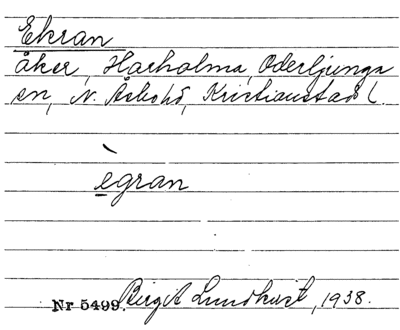 Ekran
åker, Harholma, Oderljunga
sn, N. Åsbo hd, Kristianstads l.
ègran
Nr 5499. Birgit Lundkvist, 1938.